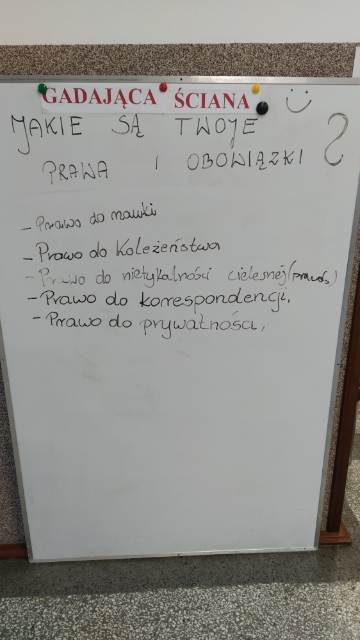 GADAJĄCA ŚCIANA
JAKIE SĄ TWOJE
PRAWA I OBOWIĄZKI ?
- Prawo do nauki
- Prawo do Koleżeństwa
- Prawo do nietykalności cielesnej
- Prawo do korespondencji,
- Prawo do prywatności,